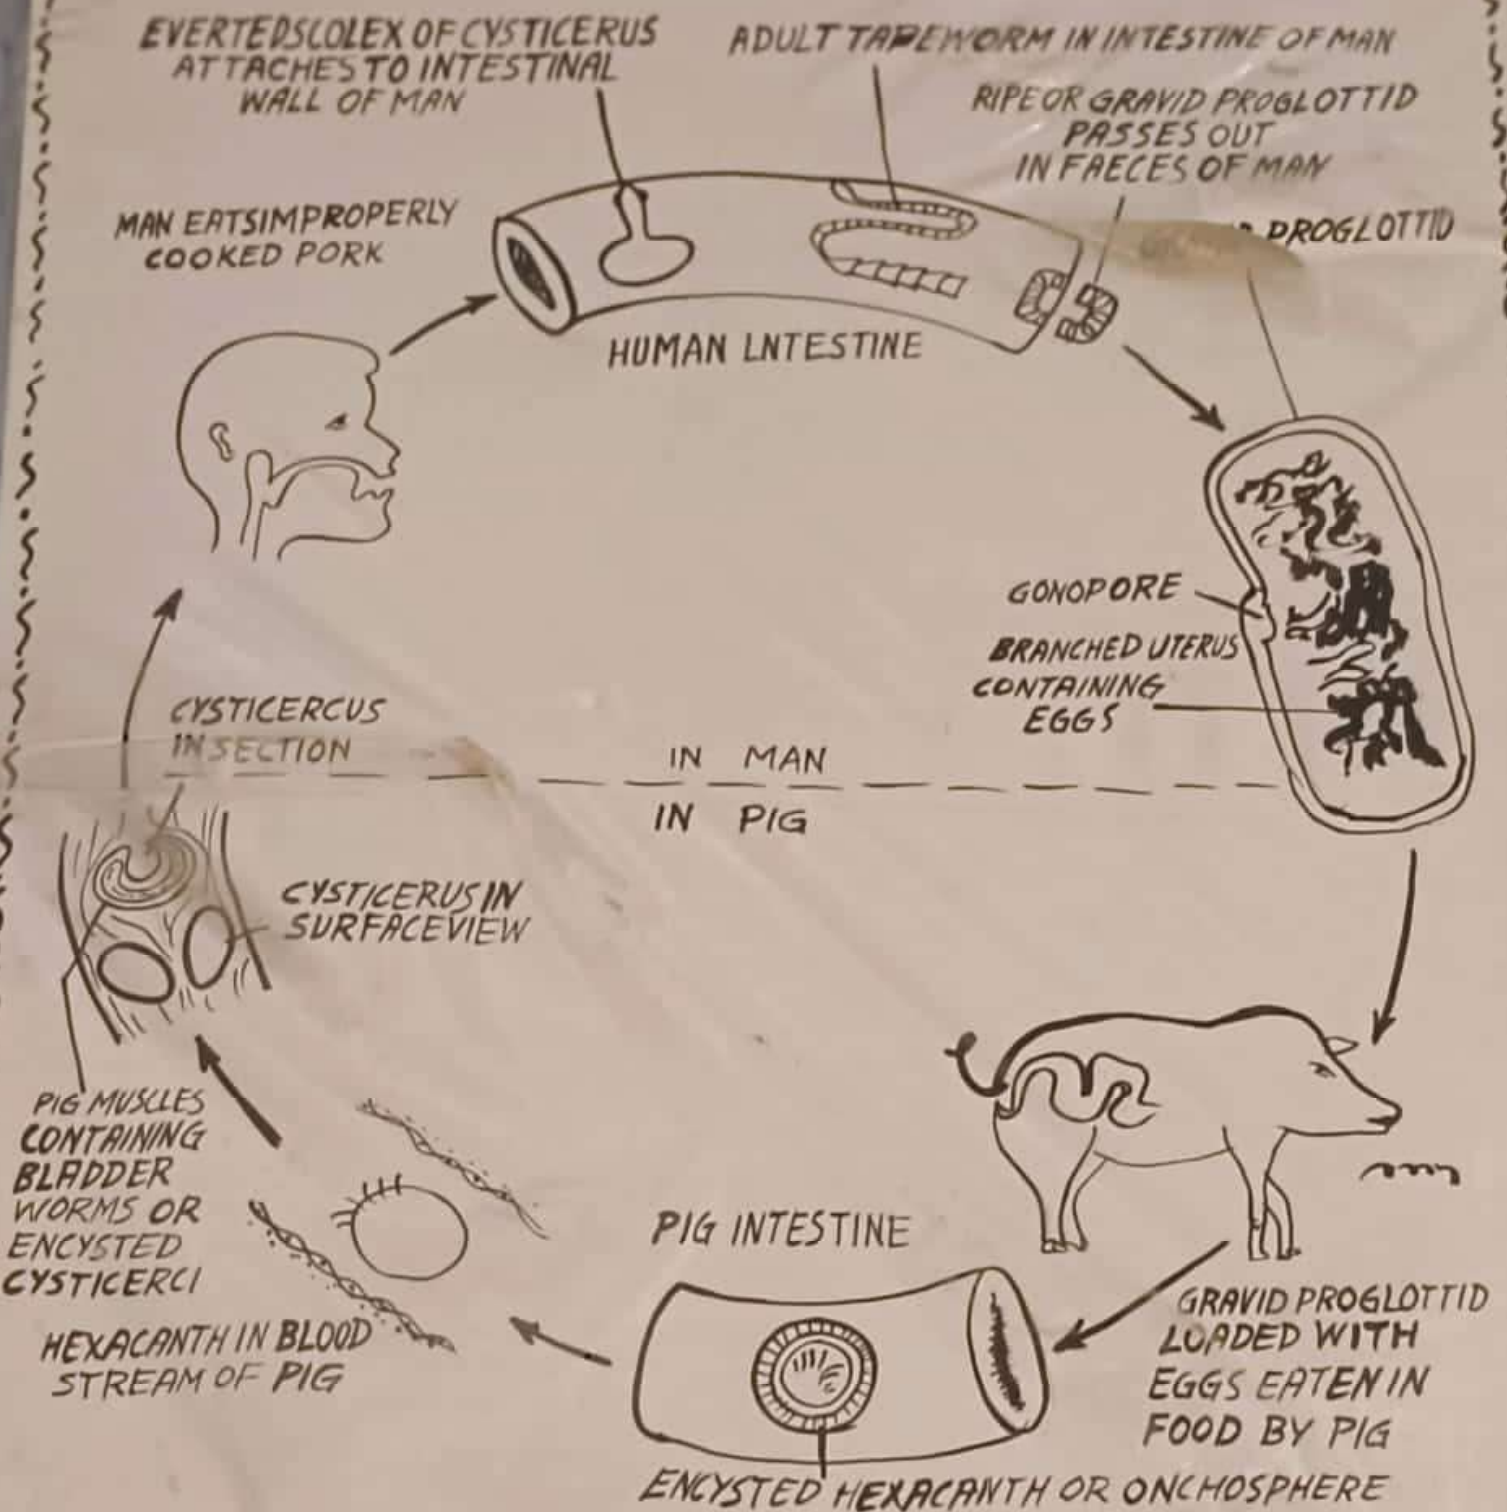 EVERTEDSCOLEX OF CYSTICERUS
ATTACHES TO INTESTINAL
WALL OF MAN
ADULT TAPEWORM IN INTESTINE OF MAN
RIPE OR GRAVID PROGLOTTID
PASSES OUT
IN FAECES OF MAN
MAN EATSIMPROPERLY
COOKED PORK
PROGLOTTID
HUMAN LNTESTINE
GONOPORE
BRANCHED UTERUS
CONTAINING
EGGS
CYSTICERCUS
IN SECTION
IN MAN
IN PIG
CYSTICERUS IN
SURFACEVIEW
PIG MUSCLES
CONTAINING
BLADDER
WORMS OR
ENCYSTED
CYSTICERCI
HEXACANTH IN BLOOD
STREAM OF PIG
PIG INTESTINE
GRAVID PROGLOTTID
LOADED WITH
EGGS EATEN IN
FOOD BY PIG
ENCYSTED HEXACANTH OR ONCHOSPHERE